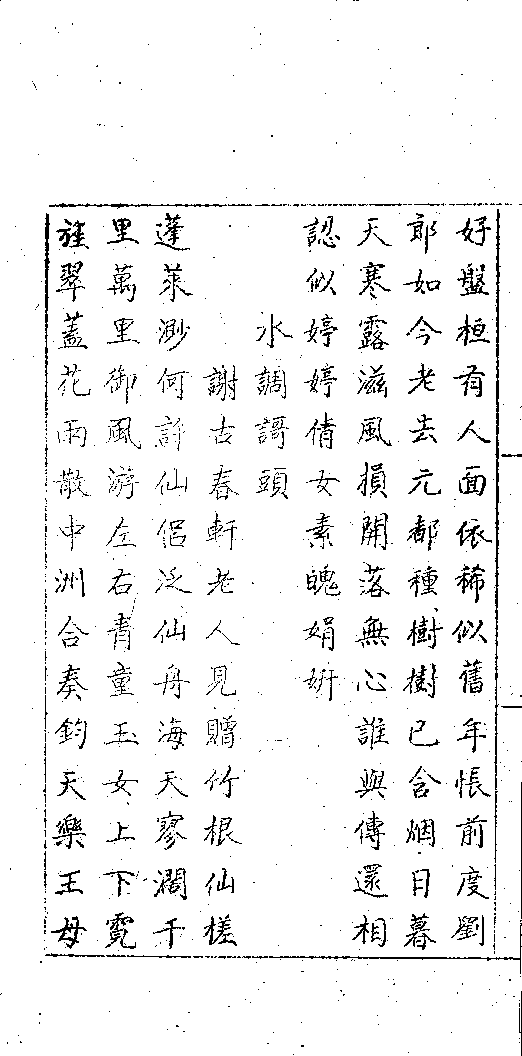 好盤桓有人面依稀似舊年悵前度劉
郎如今老去元都種樹樹已含烟日暮
天寒露滋風損開落無心誰與傳還相
認似婷婷倩女素魄娟姸
水調謌頭
謝古春軒老人見贈竹根仙槎
蓬萊渺何許仙侶泛仙舟海天寥濶千
里萬里御風游左右青童玉女上下霓
旌翠蓋花雨散中洲合奏鈞天樂王母